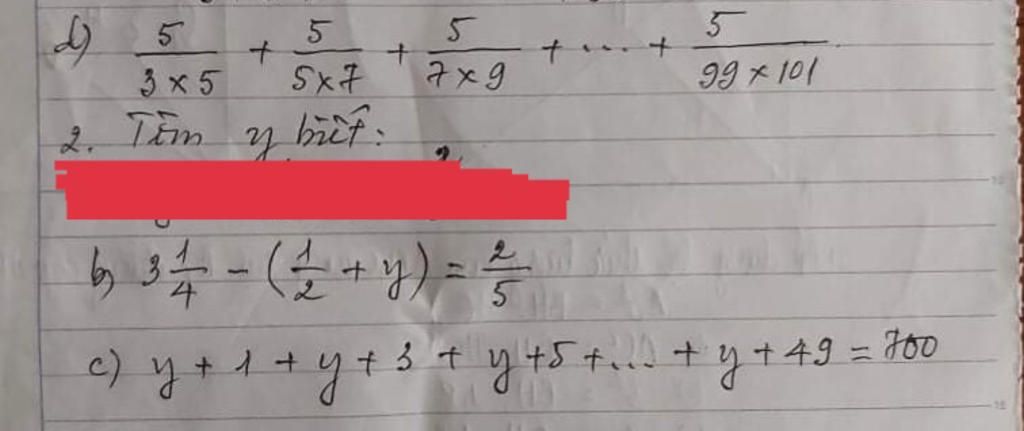 d) 5/(3 × 5) + 5/(5 × 7) + 5/(7 × 9) + ... + 5/(99 × 101)
2. Tìm y biết:
b) 3 1/4 - (1/2 + y) = 2/5
c) y + 1 + y + 3 + y + 5 + ... + y + 49 = 700